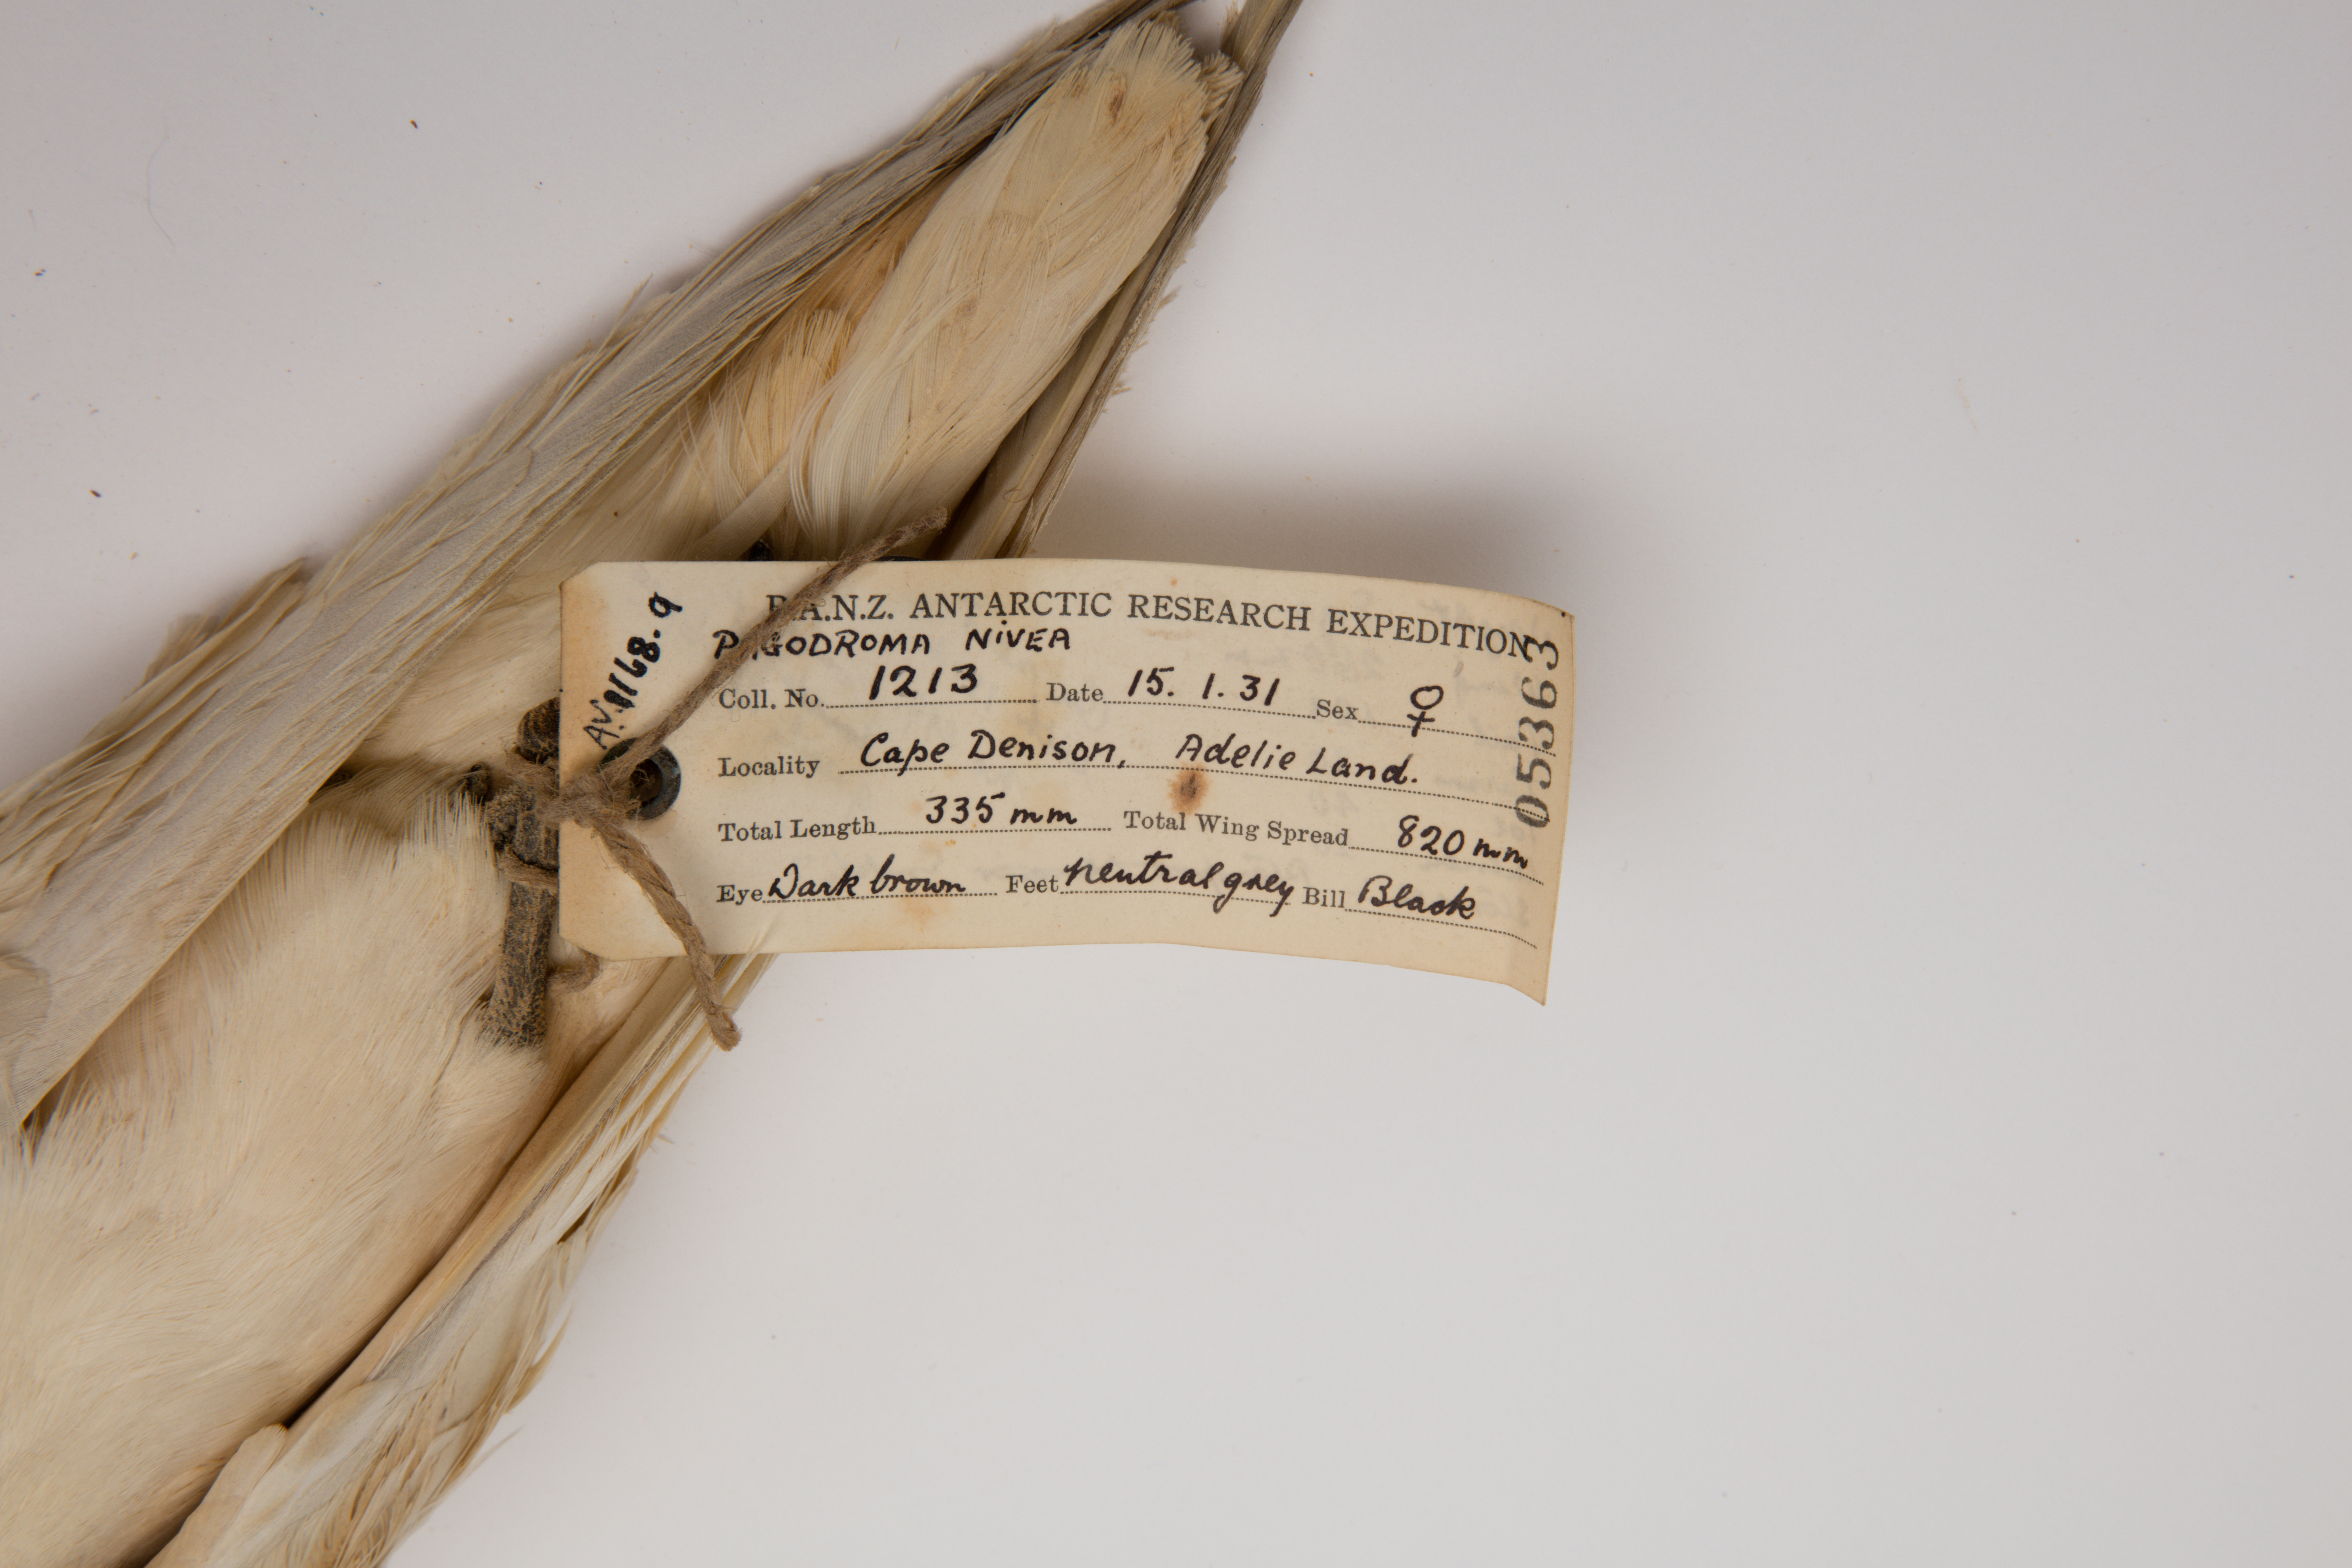 B.A.N.Z. ANTARCTIC RESEARCH EXPEDITION
PAGODROMA NIVEA
Coll. No. 1213 Date 15. 1. 31 Sex ♀
Locality Cape Denison, Adelie Land.
Total Length 335 mm Total Wing Spread 820 mm
Eye Dark brown Feet neutral grey Bill Black
053363